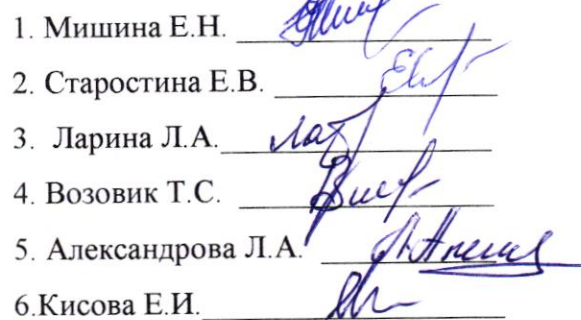 1. Мишина Е.Н.
2. Старостина Е.В.
3. Ларина Л.А.
4. Возовик Т.С.
5. Александрова Л.А.
6.Кисова Е.И.